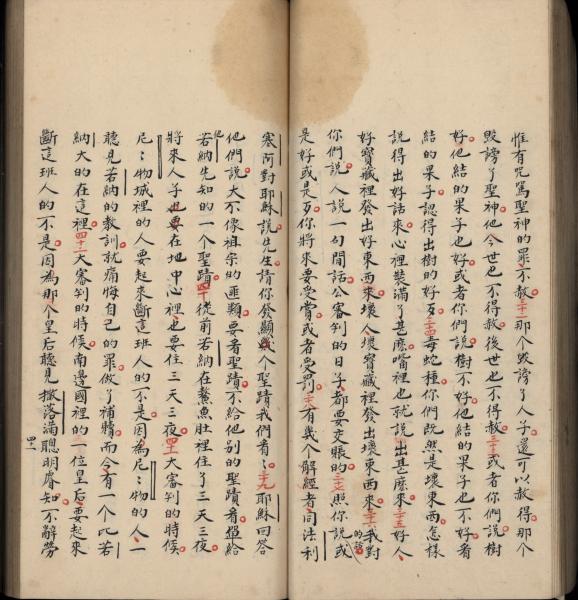 惟有咒罵聖神的罪不赦三十二那个毀謗了人子還可以赦得那个
毀謗了聖神他今世也不得赦後世也不得赦三十三或者你們說樹
好他結的果子也好或者你們說樹不好他結的果子也不好看
結的果子認得出樹的好歹三十四毒蛇種你們既然是壞東西怎樣
說得出好話來心裡裝滿了甚麽嘴裡也就說出甚麽來三十五好人
好寶藏裡發出好東西來壞人壞寶藏裡發出壞東西來三十六我對
你們說人說一句閒話公審判的日子都要交賬的三十七照你說的話或
是好或是歹你將來要受賞或者受罰三十八有幾个解經者同法利
塞阿對耶穌說先生請你發顯幾个聖蹟我們看看三十九耶穌回答
他們說大不像祖宗的匪類要看聖蹟不給他別的聖蹟看單給
他若納先知的一个聖蹟四十從前若納在鰲魚肚裡住了三天三夜
將來人子也要在地中心裡也要住三天三夜四十一大審判的時候
尼尼物城裡的人要起來斷這班人的不是因為尼尼物的人一
聽見若納的教訓就痛悔自己的罪做了補贖而今有一个比若
納大的在這裡四十二大審判的時候南邊國裡的一位皇后要起來
斷這班人的不是因為那个皇后聽見撒落滿聰明睿知不辭勞
四二